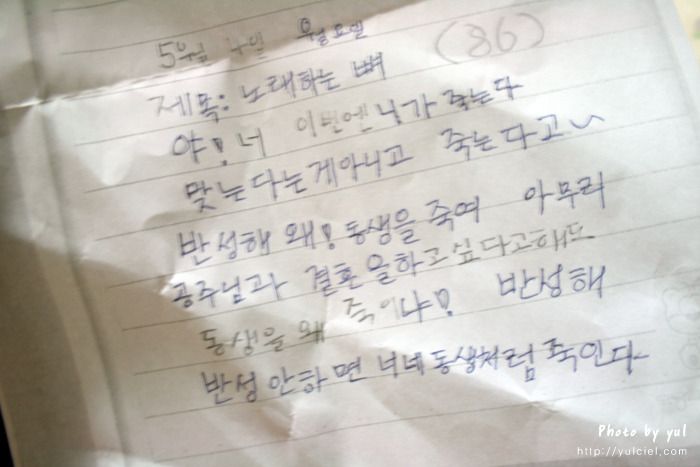 5월 4일 월요일 (86)
제목: 노래하는 뼈
야! 너 이번엔 니가 죽는다
맞는다는게아니고 죽는다고~
반성해 왜! 동생을 죽여 아무리
공주님과 결혼을하고싶다고해도
동생을 왜 죽이냐! 반성해
반성안하면 너네동생처럼죽인다~
Photo by yul
http://yulciel.com